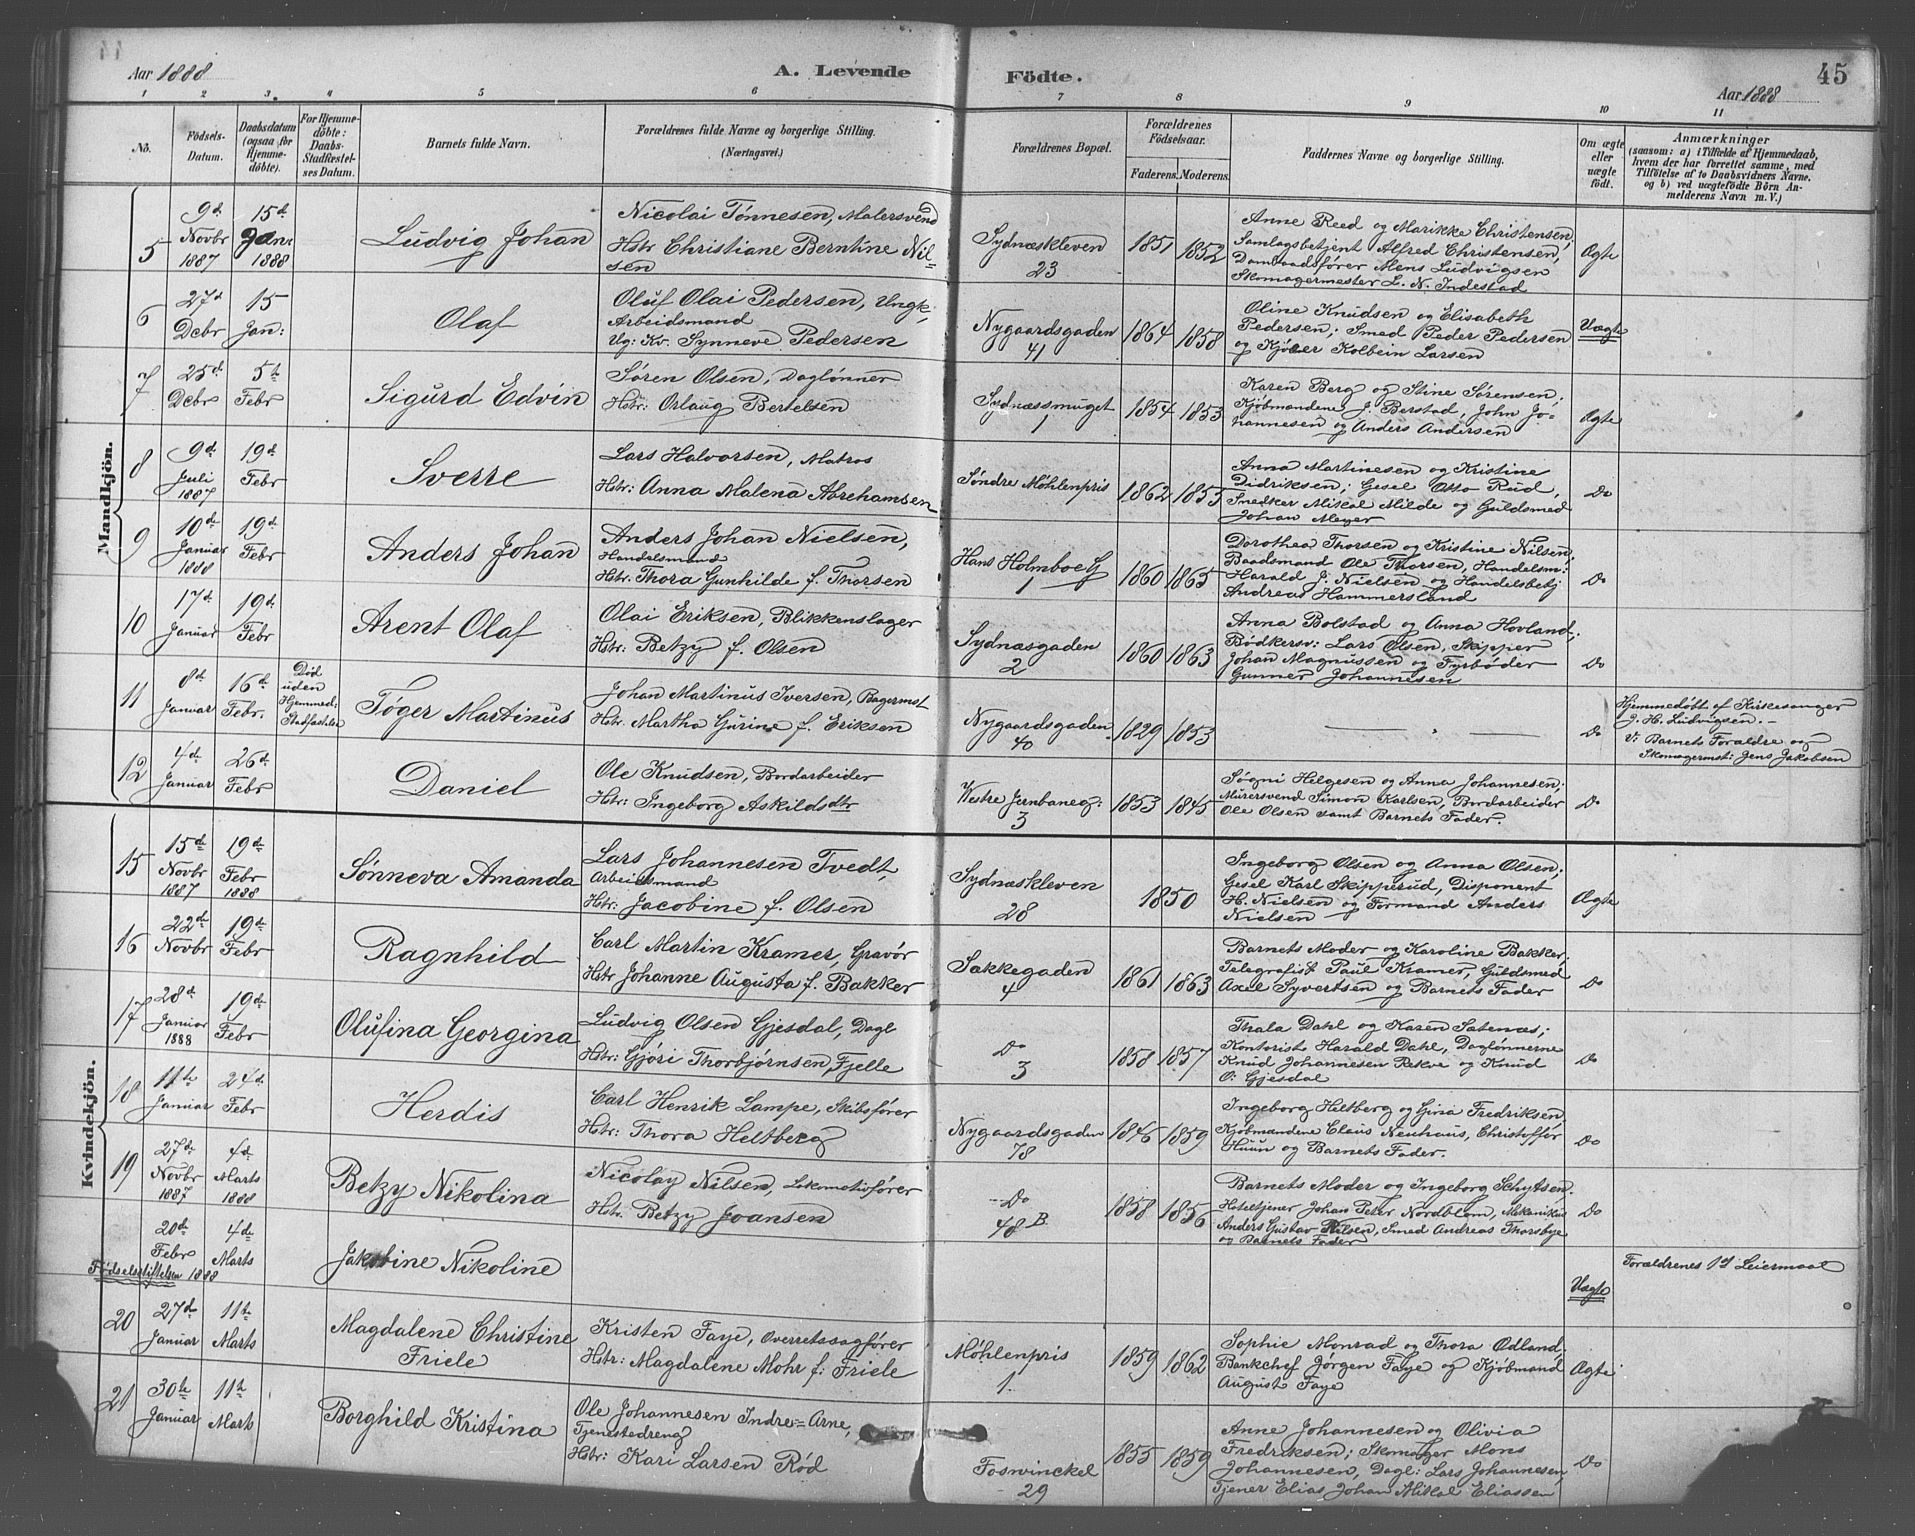 44
Aar 1888
A. Levende
Födte.
45
Aar 1888
1 2 3 4 5 6 7 8 9 10 11
No.
Födsels-
Datum.
Daabsdatum
(ogsaa for
Hjemme-
døbte).
For Hjemme-
døbte:
Daabs-
Stadfæstel-
ses Datum.
Barnets fulde Navn.
Forældrenes fulde Navne og borgerlige Stilling.
(Næringsvei.)
Forældrenes Bopæl.
Forældrenes
Födselsaar.
Faderens. Moderens.
Faddernes Navne og borgerlige Stilling.
Om ægte
eller
uægte
födt.
Anmærkninger
(saasom: a) i Tilfælde af Hjemmedaab,
hvem der har forrettet samme, med
Tilföielse af to Daabsvidners Navne.
og b) ved uægtefödte Börn An-
melderens Navn m. V.)
Mandkjön.
5
9d
Novbr
1887
15d
Jan:
1888
Ludvig Johan
Nicolai Tønnesen, Malersvend
Hstr Christiane Berntine Nil-
sen
Sydnæskleven
23
1851 1852
Anne Reed og Marikke Christensen,
Samlagsbetjent Alfred Christensen,
Dambaadsfører Mens Ludvigsen
Skomagermester L. N. Indestad
Ægte
6
27d
Dcbr
15
Jan:
Olaf
Oluf Olai Pedersen, Ungk.
Arbeidsmand
Ug: Kv. Synneve Pedersen
Nygaardsgaden
41
1864 1858
Oline Knudsen og Elisabeth
Pedersen; Smed Peder Pedersen
og Kjøler Kolbein Larsen
Uægte
7
25d
Dcbr
5te
Febr
Sigurd Edvin
Søren Olsen, Daglønner
Hstr: Orlaug Bertelsen
Sydnæssmuget
1
1854 1853
Karen Berg og Stine Sørensen;
Kjøbmandene J. Berstad, John Jo-
hannesen og Anders Andersen
Ægte
8
9d
Juli
1887
19d
Febr
Sverre
Lars Halvorsen, Matros
Hstr: Anna Malena Abrehamsen
Søndre Møhlenpris
1862 1853
Anna Martinesen og Kristine
Didriksen; Gesel Otto Rud,
Snedker Mikal Milde og Guldsmed
Johan Meyer
Do
9
10d
Januar
1888
19d
Febr
Anders Johan
Anders Johan Nielsen,
Handelsmand
Hstr: Thora Gunhilde f. Thorsen
Hans Holmboe G
1
1860 1865
Dorothea Thorsen og Kristine Nilsen,
Baadsmand Ole Thorsen, Handelsm:
Harald J. Nielsen og Handelsbetj
Andreas Hammersland
Do
10
17d
Januar
19d
Febr
Arent Olaf
Olai Eriksen, Blikkenslager
Hstr: Betzy f. Olsen
Sydnæsgaden
2
1860 1863
Anna Bolstad og Anna Hovland;
Bødkersv: Lars Olsen, Skipper
Johan Magnussen og Fyrbøder
Gunner Johannesen
Do
11
8d
Januar
16d
Febr.
Død
uden
Hjemmed:
Stadfæstelse
Tøger Martinus
Johan Martinus Iversen, Bagermst
Hstr. Martha Gurine f. Eriksen
Nygaardsgaden
40
1829 1853
Do
Hjemmedøbt af Kirkesanger
J. H. Ludvigsen. –
V: Barnets Forældre og
Skomagermst: Jens Jakobsen
12
4d
Januar
26d
Febr
Daniel
Ole Knudsen, Bordarbeider
Hstr: Ingeborg Askildsdtr
Vestre Jernbaneg:
3
1853 1845
Søgni Helgesen og Anna Johannesen;
Murersvend Simon Karlsen, Bordarbeider
Ole Olsen samt Barnets Fader.
Do
Kvindekjön.
15
15de
Novbr
1887
19de
Febr
1888
Sønneva Amanda
Lars Johannesen Tvedt,
Arbeidsmand
Hstr: Jacobine f. Olsen
Sydnæskleven
28
1850
Ingeborg Olsen og Anna Olsen;
Gesel Karl Skipperud, Disponent
H. Nielsen og Formand Anders
Nielsen
Ægte
16
22de
Novbr
19de
Febr
Ragnhild
Carl Martin Kramer, Gravør
Hstr Johanne Augusta f. Bakker
Sækkegaden
4
1861 1863
Barnets Moder og Karoline Bakker.
Telegrafist Paul Kramer, Guldsmed
Axel Syvertsen og Barnets Fader
Do
17
28de
Januar
1888
19de
Febr
Olufina Georgina
Ludvig Olsen Gjesdal, Dagl
Hstr: Gjøri Thorbjørnsen, Fjelle
Do
3
1858 1857
Thala Dahl og Karen Sætenæs;
Kontorist Harald Dahl, Dagløn­nerne
Knud Johannesen Rekve og Knud
O: Gjesdal
Do
18
11te
Januar
24de
Febr
Herdis
Carl Henrik Lampe, Skibsfører
Hstr: Thora Heltberg
Nygaardsgaden
78
1846 1859
Ingeborg Heltberg og Gina Fredriksen,
Kjøbmandene Claus Neuhaus, Christoffer
Huun og Barnets Fader.
Do
19
27de
Novbr
1887
4de
Marts
1888
Betzy Nikolina
Nicolay Nilsen, Lokomotivfører
Hstr. Betzy Joansen
Do
48 B.
1858 1856
Barnets Moder og Ingeborg Schytsen.
Hoteltjener Johan Peter Nordblom, Mekanikus
Anders Gustav Nilsen, Smed Andreas Thorsbye
og Barnets Fader
Do
20de
Febr
Fødselsstiftelsen 1888
4de
Marts
Jakobine Nikoline
Uægte
Forældrenes 1st Leiermaal
20
27de
Januar
11te
Marts
Magdalene Christine
Friele
Kristen Faye, Overretssagfører
Hstr: Magdalene Mohr f: Friele
Møhlenpris
1.
1859 1862
Sophie Monrad og Thora Odland;
Bankchef Jørgen Faye og Kjøbmand
August Faye
Ægte
21
30te
Januar
11te
Marts
Borghild Kristina
Ole Johannesen Indre-Arne,
Tjenestedreng
Hstr: Kari Larsen Rød
Foswinckel
29
1855 1859
Anne Johannesen og Olivia
Fredriksen; Skomager Mons
Johannesen, Dagl: Lars Johannesen,
Tjener Elias Johan Mikal Eliassen
Do